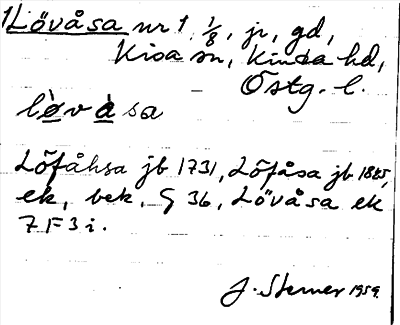 1 Lövåsa nr 1 1/8, jr, gd,
Kisa sn, Kinda hd,
Östg. l.
lò̱và̱sa
Löfåhsa jb 1731, Löfåsa jb 1885,
ek, bek. § 36, Lövåsa ek
7 F 3 i.
J. Sterner 1959.